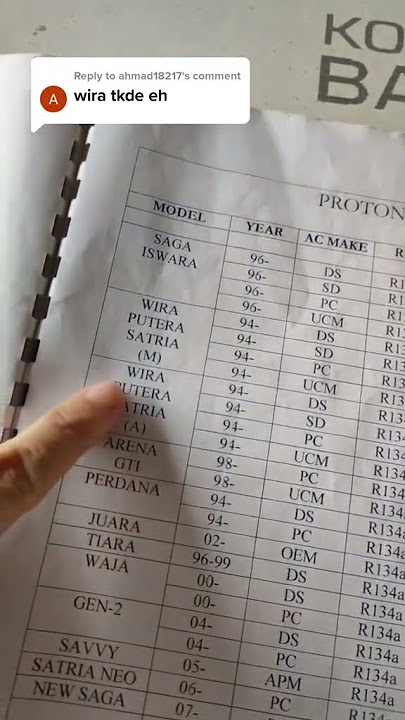 Reply to ahmad18217's comment
A
wira tkde eh
KO
BA
PROTON
MODEL YEAR AC MAKE R
SAGA 96- DS R1
ISWARA 96- SD R1
96- PC R1
WIRA 94- UCM R1
PUTERA 94- DS R1
SATRIA 94- SD R1
(M) 94- PC R1
WIRA 94- UCM R1
PUTERA 94- DS R1
ATRIA 94- SD R1
(A) 94- PC R1
ARENA 98- UCM R134
GTI 98- PC R134
PERDANA 94- UCM R134a
94- DS R134a
JUARA 02- PC R134a
TIARA 96-99 OEM R134a
WAJA 00- DS R134a
00- PC R134a
GEN-2 04- DS R134a
04- PC R134a
SAVVY 05- APM R134a
SATRIA NEO 06- PC R134a
NEW SAGA 07- PC